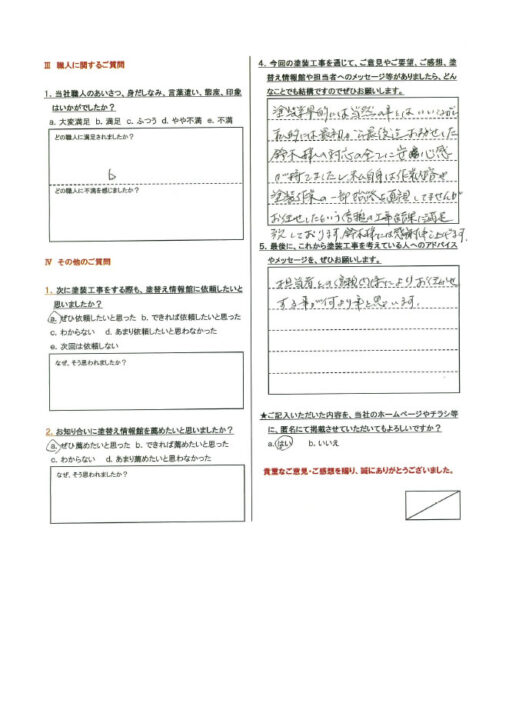 Ⅲ 職人に関するご質問
1. 当社職人のあいさつ、身だしなみ、言葉遣い、態度、印象
はいかがでしたか？
a. 大変満足 b. 満足 c. ふつう d. やや不満 e. 不満
どの職人に満足されましたか？
b
どの職人に不満を感じましたか？
Ⅳ その他のご質問
1. 次に塗装工事をする際も、塗替え情報館に依頼したいと
思いましたか？
a. ぜひ依頼したいと思った b. できれば依頼したいと思った
c. わからない d. あまり依頼したいと思わなかった
e. 次回は依頼しない
なぜ、そう思われましたか？
2. お知り合いに塗替え情報館を薦めたいと思いましたか？
a. ぜひ薦めたいと思った b. できれば薦めたいと思った
c. わからない d. あまり薦めたいと思わなかった
なぜ、そう思われましたか？
4. 今回の塗装工事を通じて、ご意見やご要望、ご感想、塗
替え情報館や担当者へのメッセージ等がありましたら、どん
なことでも結構ですのでぜひお願いします。
塗装業界的には当然の事とはいいつつ
私的には最初から最後迄、お任せした
鈴木様の対応の全てに安心感
が持てました。私自身は作業内容や
塗装作業の一部始終を直視してませんが
お任せしたという信頼の工事結果に満足
致しております。鈴木様には感謝申し上げます。
5. 最後に、これから塗装工事を考えている人へのアドバイス
やメッセージを、ぜひお願いします。
担当者との信頼関係によりお任せ
する事が何より幸と思います。
★ご記入いただいた内容を、当社のホームページやチラシ等
に、匿名にて掲載させていただいてもよろしいですか？
a. はい b. いいえ
貴重なご意見・ご感想を賜り、誠にありがとうございました。